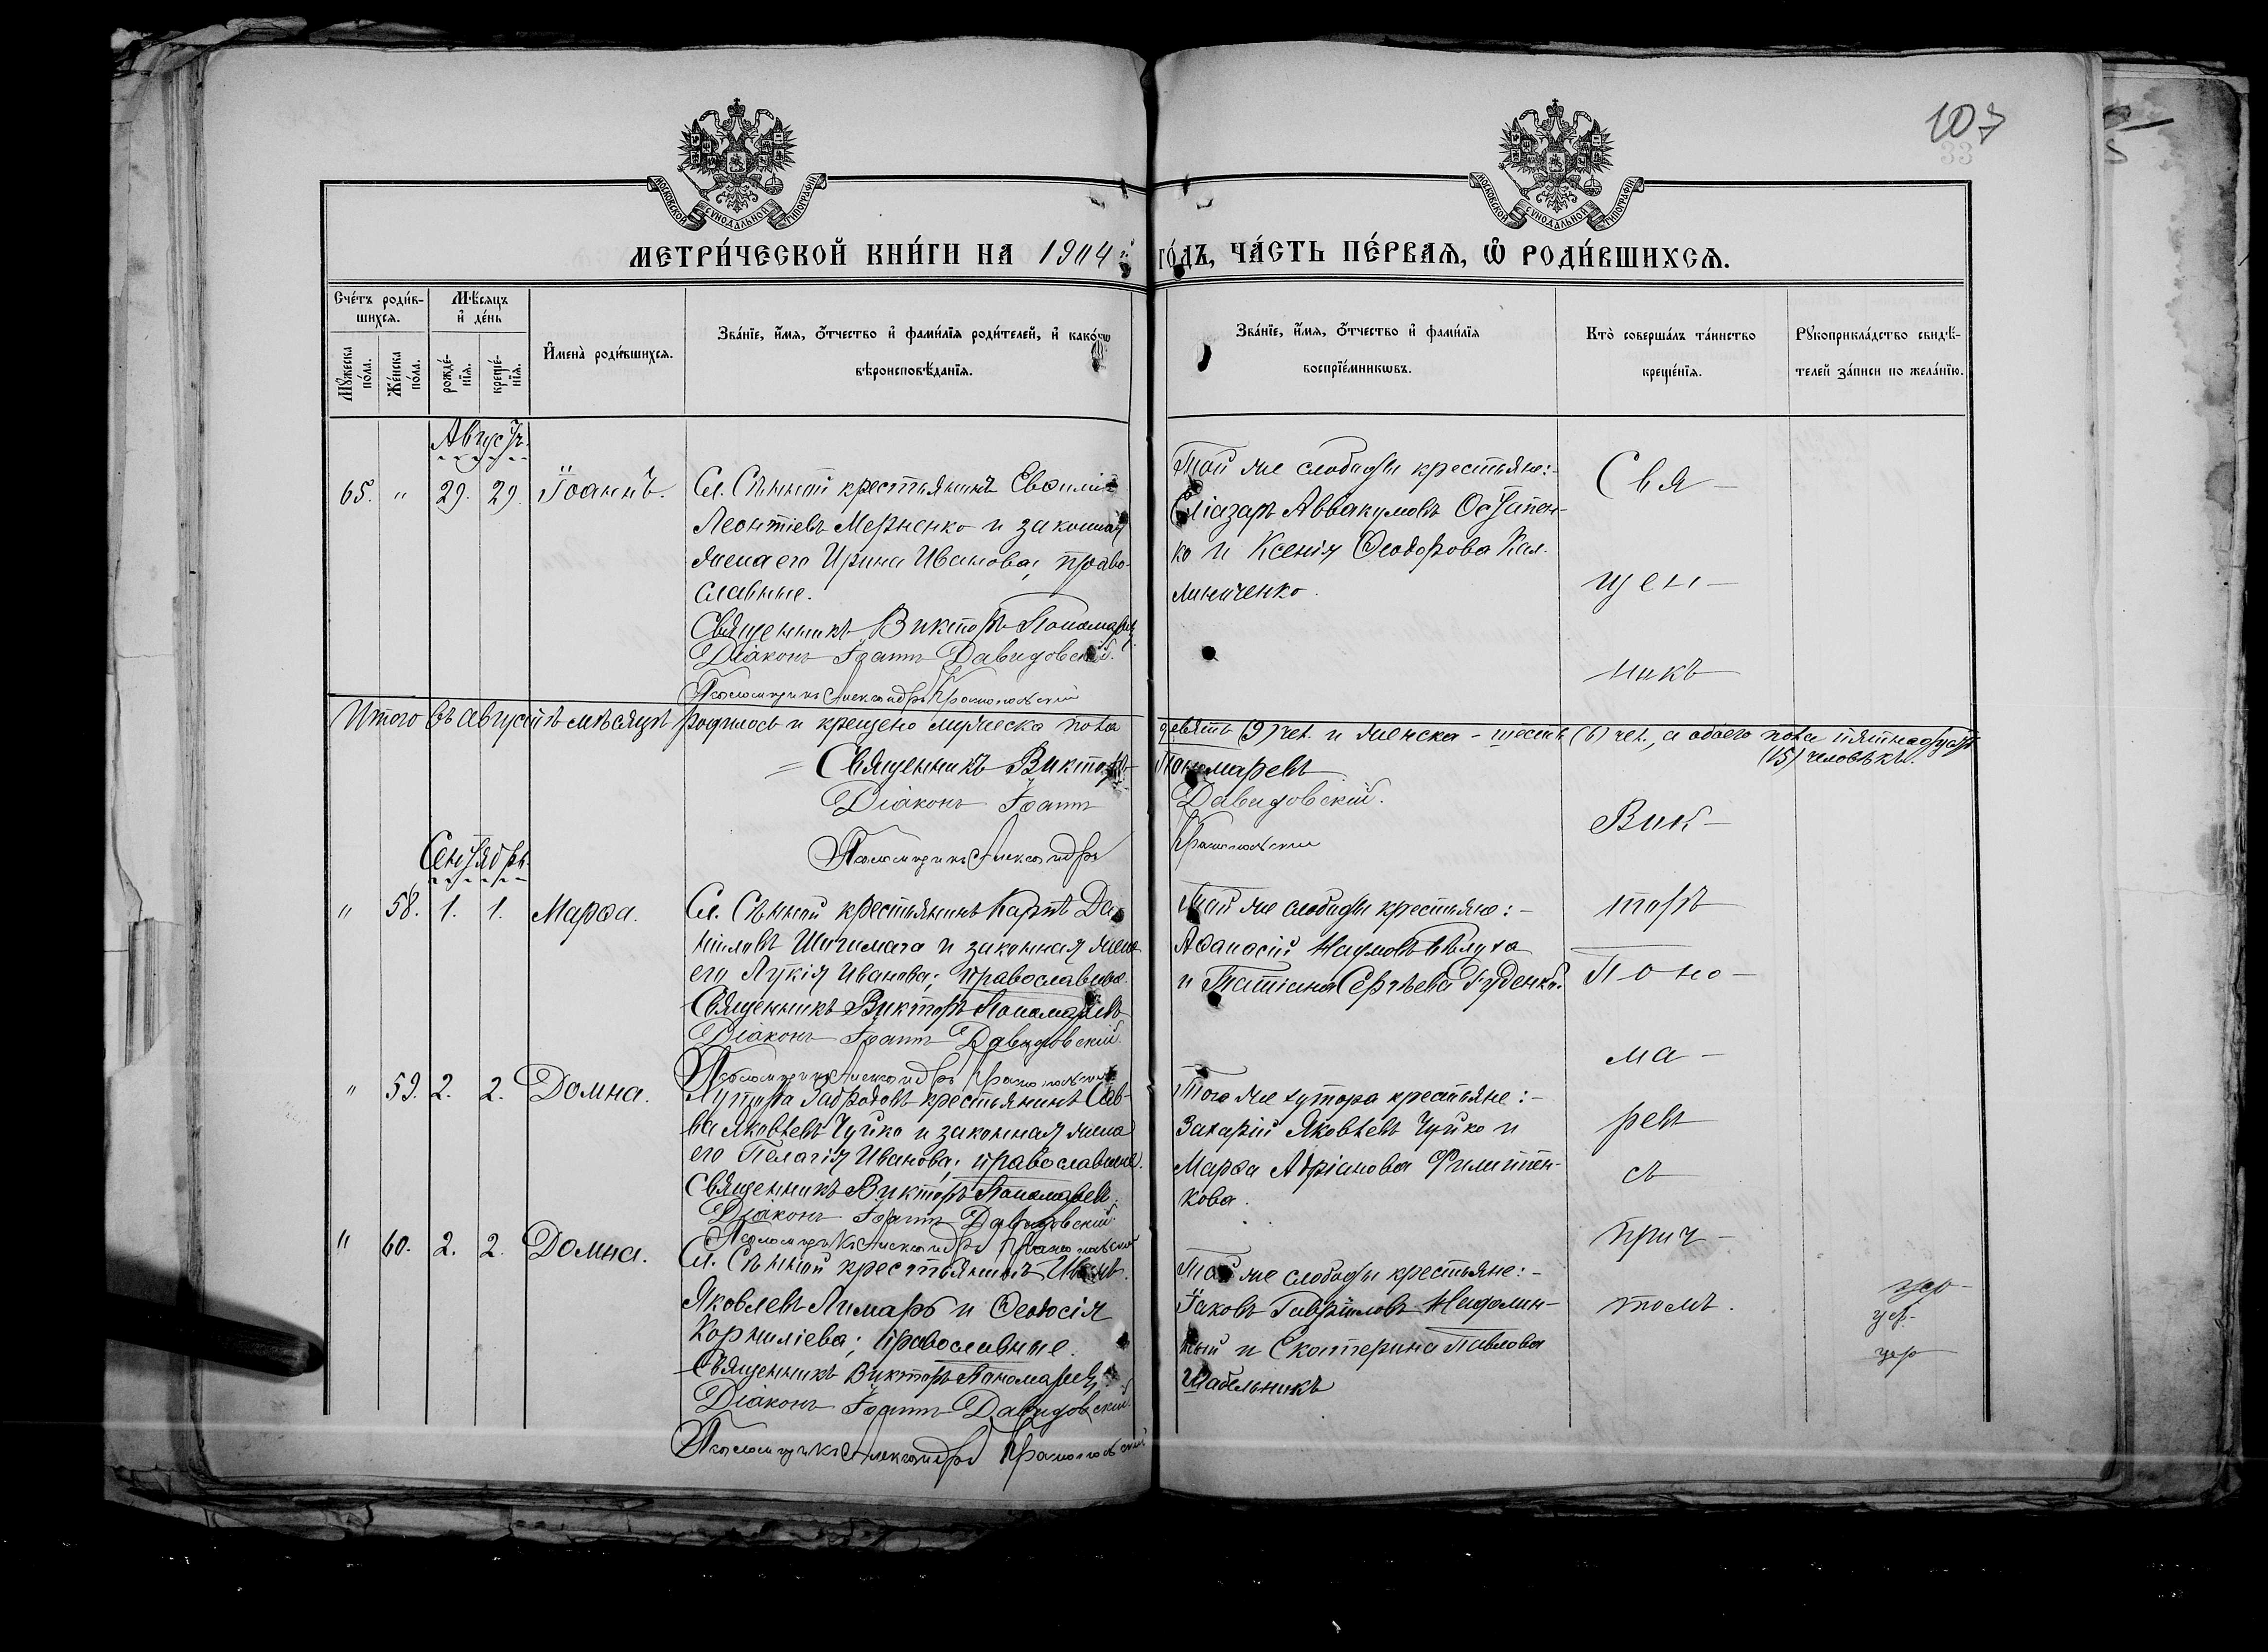 107
33
МОСКОВСКОЙ СУНОДАЛЬНОЙ ТИПОГРАФІИ
МОСКОВСКОЙ СУНОДАЛЬНОЙ ТИПОГРАФІИ
МЕТРИ́ЧЕСКОЙ КНИ́ГИ НА 1904 й ГО́ДЪ, ЧА́СТЬ ПЕ́РВАѦ, Ѽ РОДИ́ВШИХСѦ.
Сче́тъ роди́в-
шихсѧ.
Мѣ́сѧцъ
и҆ де́нь
Мꙋ́жеска по́ла.
Же́нска по́ла.
рожде́-
нїѧ.
креще́-
нїѧ.
И҆мена̀ роди́вшихсѧ.
Зва́нїе, и҆́мѧ, ѻ҆́тчество и҆ фами́лїѧ роди́телей, и҆ како́гѡ
вѣроисповѣ́данїѧ.
Зва́нїе, и҆́мѧ, ѻ҆́тчество и҆ фами́лїѧ
воспрїе́мникѡвъ.
Кто̀ соверша́лъ та́инство
креще́нїѧ.
Рꙋкоприкла́дство свидѣ́-
телей за́писи по жела́нїю.
Августъ.
65. " 29. 29. Іоаннъ.
Сл. Сѣнной крестьянинъ Евѳимій
Леонтіевъ Мерненко и законная
жена его Ирина Иванова, право-
славные.
Священникъ Викторъ Пономаревъ
Діаконъ Іоаннъ Давидовскій.
Псаломщикъ Александръ
Той же слободы крестьяне:-
Еліазаръ Аввакумовъ Остапен-
ко и Ксенія Ѳеодорова Кал-
линиченко.
Итого въ августѣ мѣсяцѣ родилось и крещено мужеска пола девять (9) чел. и женска - шесть (6) чел., а обоего пола пятнадцать
(15) человѣкъ.
Священникъ Викторъ Пономаревъ
Діаконъ Іоаннъ Давидовскій.
Псаломщикъ Александръ
Сентябрь
" 58. 1. 1. Марѳа.
Сл. Сѣнной крестьянинъ Карпъ Да-
ніиловъ и законная жена
его Лукія Иванова; православные.
Священникъ Викторъ Пономаревъ
Діаконъ Іоаннъ Давидовскій.
Псаломщикъ Александръ
Той же слободы крестьяне:-
Аѳанасій Наумовъ Бѣлуха
и Татіана Сергѣева Руденко.
" 59. 2. 2. Домна.
Хутора крестьянинъ Сав-
ва Яковлевъ Чуйко и законная жена
его Пелагія Иванова; православные.
Священникъ Викторъ Пономаревъ.
Діаконъ Іоаннъ Давидовскій.
Псаломщикъ Александръ
Того же хутора крестьяне:-
Захарій Яковлевъ Чуйко и
Марѳа Адріанова Филиппен-
кова.
" 60. 2. 2. Домна.
Сл. Сѣнной крестьянинъ Иванъ
Яковлевъ Лимарь и Ѳеодосія
Корниліева; православные.
Священникъ Викторъ Пономаревъ
Діаконъ Іоаннъ Давидовскій.
Псаломщикъ Александръ
Той же слободы крестьяне:-
Іаковъ Гавріиловъ
и Екатерина Павлова
Шабельникъ
Свя-
щен-
никъ
Вик-
торъ
Поно-
ма-
ревъ
съ
прич-
томъ.